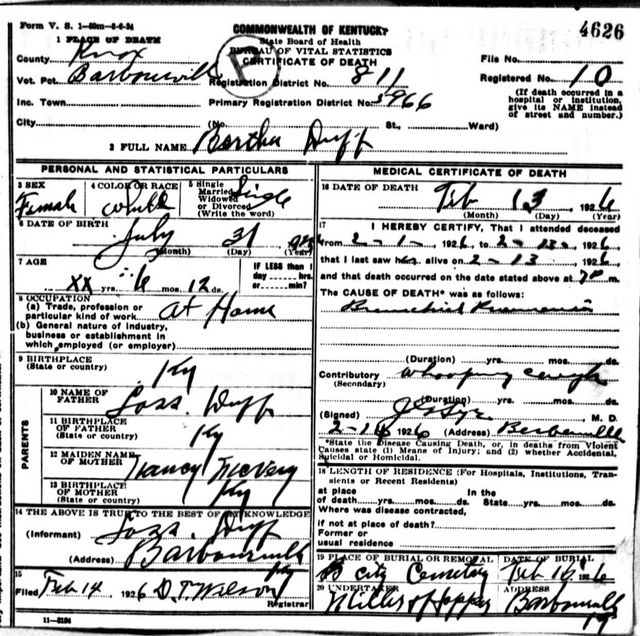 Form V. S. 1-50m-8-6-24
COMMONWEALTH OF KENTUCKY
State Board of Health
BUREAU OF VITAL STATISTICS
CERTIFICATE OF DEATH
4626
1 PLACE OF DEATH
County Knox
File No.
Vot. Pct. Barbourville
Registration District No. 811
Registered No. 10
Inc. Town
Primary Registration District No. 5966
(If death occurred in a hospital or institution, give its NAME instead of street and number.)
City (No. St., Ward)
2 FULL NAME Bertha Duff
PERSONAL AND STATISTICAL PARTICULARS
3 SEX Female
4 COLOR OR RACE White
5 Single Married Widowed or Divorced (Write the word) Single
6 DATE OF BIRTH July 31
(Month) (Day) (Year)
7 AGE
xx yrs. 6 mos. 12 ds.
IF LESS than 1 day hrs. or min?
8 OCCUPATION
(a) Trade, profession or particular kind of work At Home
(b) General nature of industry, business or establishment in which employed (or employer)
9 BIRTHPLACE (State or country) Ky
PARENTS
10 NAME OF FATHER Loss. Duff
11 BIRTHPLACE OF FATHER (State or country) Ky
12 MAIDEN NAME OF MOTHER Nancy
13 BIRTHPLACE OF MOTHER (State or country) Ky
14 THE ABOVE IS TRUE TO THE BEST OF MY KNOWLEDGE
(Informant) Loss. Duff
(Address) Barbourville Ky
15
Filed Feb 14 1926 D. T. Wilson
Registrar
11-3184
MEDICAL CERTIFICATE OF DEATH
16 DATE OF DEATH Feb 13, 1926
(Month) (Day) (Year)
17 I HEREBY CERTIFY, That I attended deceased
from 2-1-, 1926, to 2-13, 1926,
that I last saw alive on 2-13, 1926,
and that death occurred on the date stated above at m.
The CAUSE OF DEATH* was as follows:
Bronchial Pneumonia
(Duration) yrs. mos. ds.
Contributory whooping cough
(Secondary)
(Duration) yrs. mos. ds.
(Signed) M. D.
2-14 1926 (Address) Barbourville
*State the Disease Causing Death, or, in deaths from Violent
Causes state (1) Means of Injury; and (2) whether Accidental,
Suicidal or Homicidal.
18 LENGTH OF RESIDENCE (For Hospitals, Institutions, Transients or Recent Residents)
at place of death yrs. mos. ds. In the State yrs. mos. ds.
Where was disease contracted,
if not at place of death?
Former or
usual residence
19 PLACE OF BURIAL OR REMOVAL DATE OF BURIAL
B city Cemetery Feb 15 1926
20 UNDERTAKER ADDRESS
Barbourville Ky